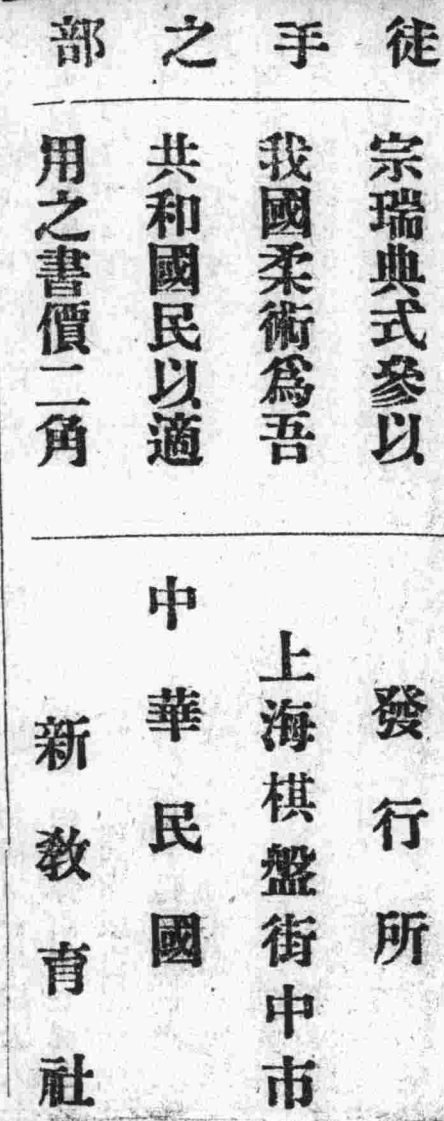 徒手之部
宗瑞典式參以
我國柔術爲吾
共和國民以適
用之書價二角
發行所
上海棋盤街中市
中華民國
新教育社